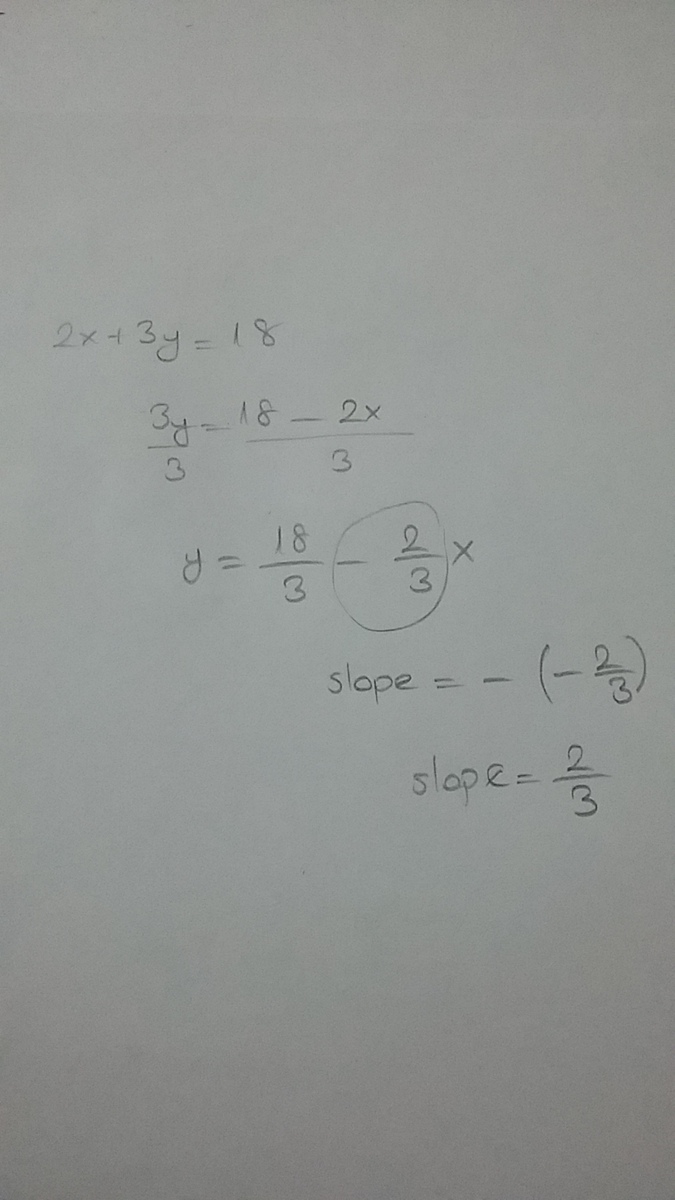 2x+3y=18
3y/3 = (18 - 2x)/3
y = 18/3 - 2/3 x
slope = - (- 2/3)
slope = 2/3